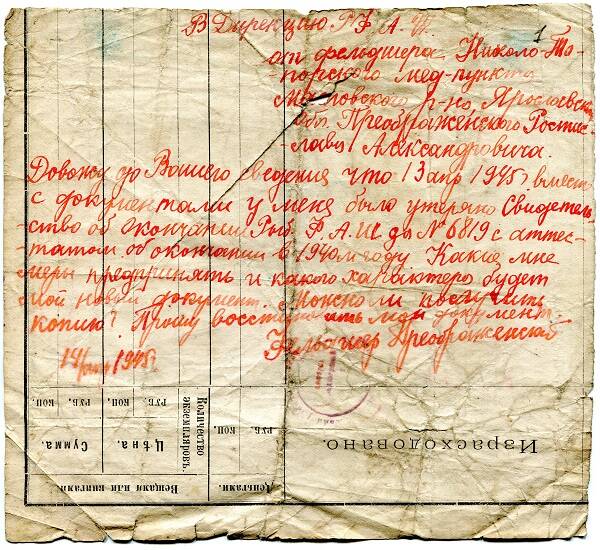 В Дирекцию Р.Ф.А.Ш.
1
от фельдшера Николо-То-
порского мед-пункта
р-на, Ярославской
обл. Преображенского Ростис-
лава Александровича.
Довожу до Вашего сведения что 13 апр 1945 г. вместе
с документами у меня было утеряно Свидетель-
ство об окончании Рыб. Ф.А.Ш. за № 6819 с аттес-
татом об окончании в 1940м году. Какие мне
меры предпринять и какого характера будет
мой новый документ. Можно ли получить
копию? Прошу восстановить мой документ.
Фельдшер Преображенский
1945 г.
Израсходовано.
Деньгами.
Вещами или книгами
РУБ. КОП.
Количество экземпляровъ.
Цѣна.
Сумма.
РУБ. КОП.
РУБ. КОП.